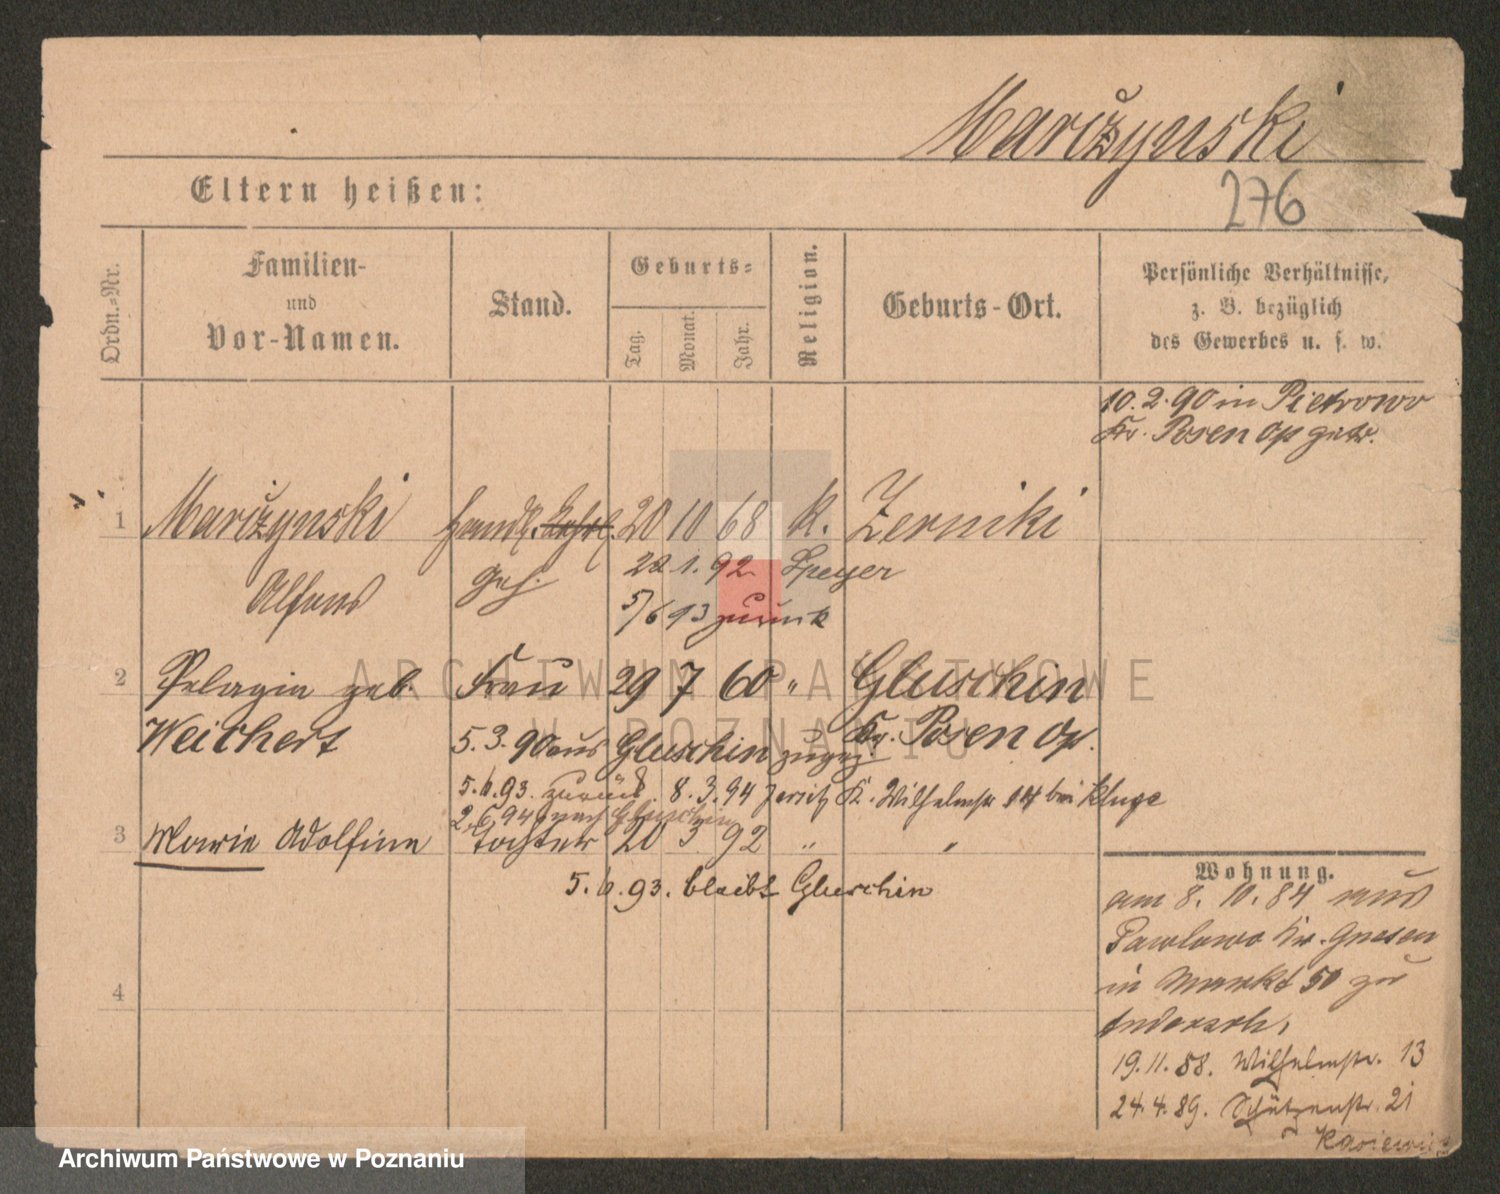 Marczynski
276
Eltern heißen:
Ordn.-Nr.
Familien-
und
Vor-Namen.
Stand.
Geburts-
Tag.
Monat.
Jahr.
Religion.
Geburts-Ort.
Persönliche Verhältnisse,
z. B. bezüglich
des Gewerbes u. s. w.
10. 2. 90 in Pietrowo
Kr. Posen Op getr.
1 Marczynski Handl. Lehrl. 20 10 68 k. Zerniki
Alfons Geh. 22 1. 92 Speyer
5/6 93 zurück
2 Pelagia geb. Frau 29 7 60 " Gluschin
Weichert 5. 3. 90 aus Gluschin zugez. Kr. Posen Op.
5. 6. 93. zurück 8. 3. 94 Jersitz K. Wilhelmstr 14 bei Kluge
2. 6 94 nach Gluschin
3 Marie Adolfine Tochter 20 3 92 " "
5. 6. 93. bleibt Gluschin
4
Wohnung.
am 8. 10. 84 aus
Pawlowo Kr. Gnesen
in Markt 50 zu
19. 11. 88. Wilhelmstr. 13
24. 4. 89. Schützenstr. 21
ARCHIWUM PAŃSTWOWE
W POZNANIU
Archiwum Państwowe w Poznaniu